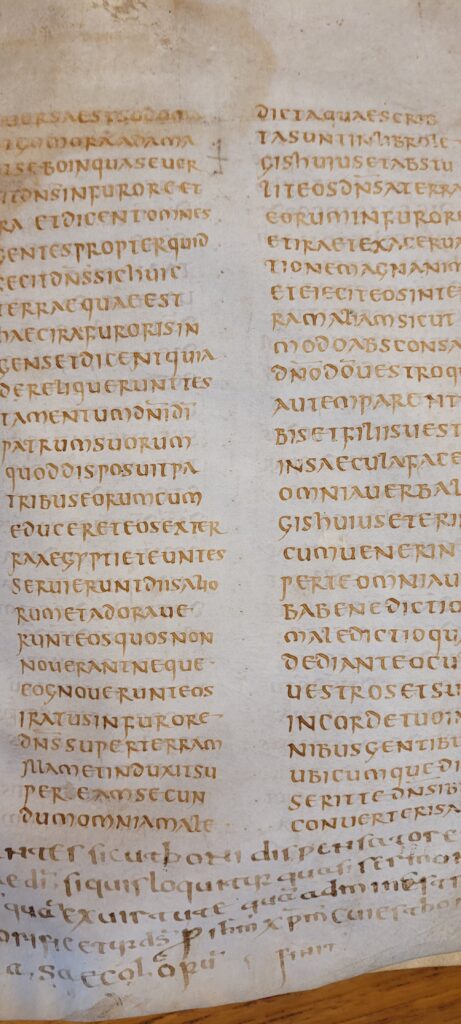 UERSAESTSODOMA
GOMORAADAMA
SEBOINQUASEUER
DNSINFURORE ET
RA ETDICENTOMNES
GENTESPROPTERQUID
FECITDNSSICHUIC
TERRAEQUAEEST
HAECIRAFURORISIN
GENSETDICENTQUIA
DERELIQUERUNTTES
TAMENTUMDNIDI
PATRUMSUORUM
QUODDISPOSUITPA
TRIBUSEORUMCUM
EDUCERETEOSEXTER
RAAEGYPTIETEUNTES
SERUIERUNTDIISALIO
RUMETADORAUE
RUNTEOSQUOSNON
NOUERANTNEQUE
COGNOUERUNTEOS
IRATUSINFURORE
DNSSUPERTERRAM
ILLAMETINDUXITSU
PER EAMSECUN
DUMOMNIAMALE
DICTAQUAESCRIB
TASUNTINLIBROLE
GISHUIUSETABSTU
LITEOSDNSATERRA
EORUMINFURORE
ETIRAETEXACERUA
TIONEMAGNANIM
ETEIECITEOSINTE
RAMALIAMSICUT
MODOABSCONSA
DNODOUESTROQ
AUTEMPARENT
BISETFILIISUEST
INSAECULAFACE
OMNIAUERBAL
GISHUIUSETERI
CUMUENERIN
PERTEOMNIAU
BABENEDICTIO
MALEDICTIOQU
DEDIANTEOCU
UESTROSETSU
INCORDETUOIN
NIBUSGENTIBU
UBICUMQUEDI
SERITTEDNSIB
CONUERTERISA
antes sicut boni dispensatore
di siquis loquitur quasi sermon
quā exuirtute quā administ
orificeturds p ihm xpm cui est
a saecolorū finit